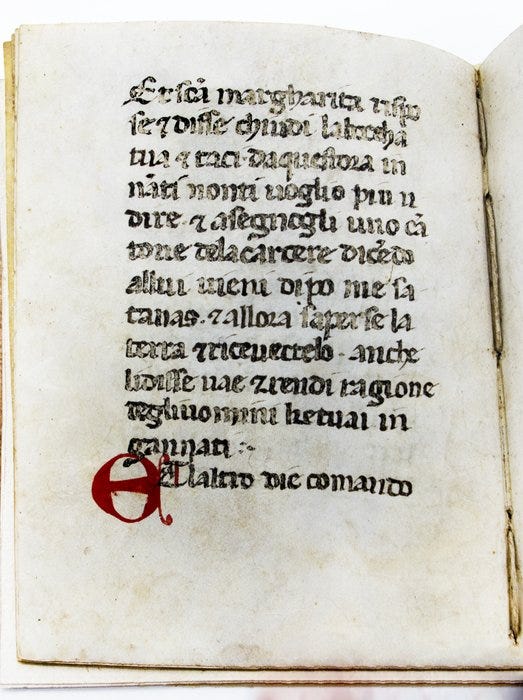 Et scā margharita rispo
se ⁊ disse chiudi la boccha
tua ⁊ taci. da questora in
nāti nonti uoglio piu u
dire. ⁊ asegnogli uno cā
tone delacarcere dicēdo
allui uieni dipo me sa
tanas. ⁊ allora saperse la
terra ⁊ riceuettelo. anche
lidisse uae ⁊ rendi ragione
degliuomini ketuai in
gannati :~
ETlaltro die comando